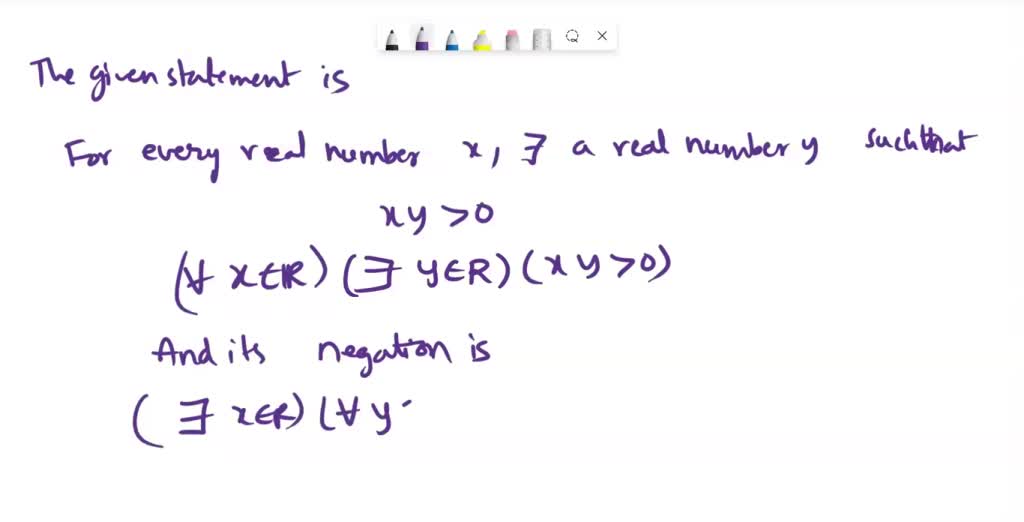 The given statement is
For every real number x, ∃ a real number y such that
xy > 0
(∀ x∈R) (∃ y∈R) (xy > 0)
And its negation is
(∃ x∈R) (∀ y